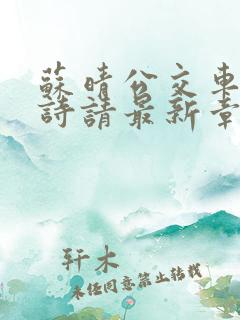 蘇晴公交車
詩請最新章
轩木
未经同意禁止转载